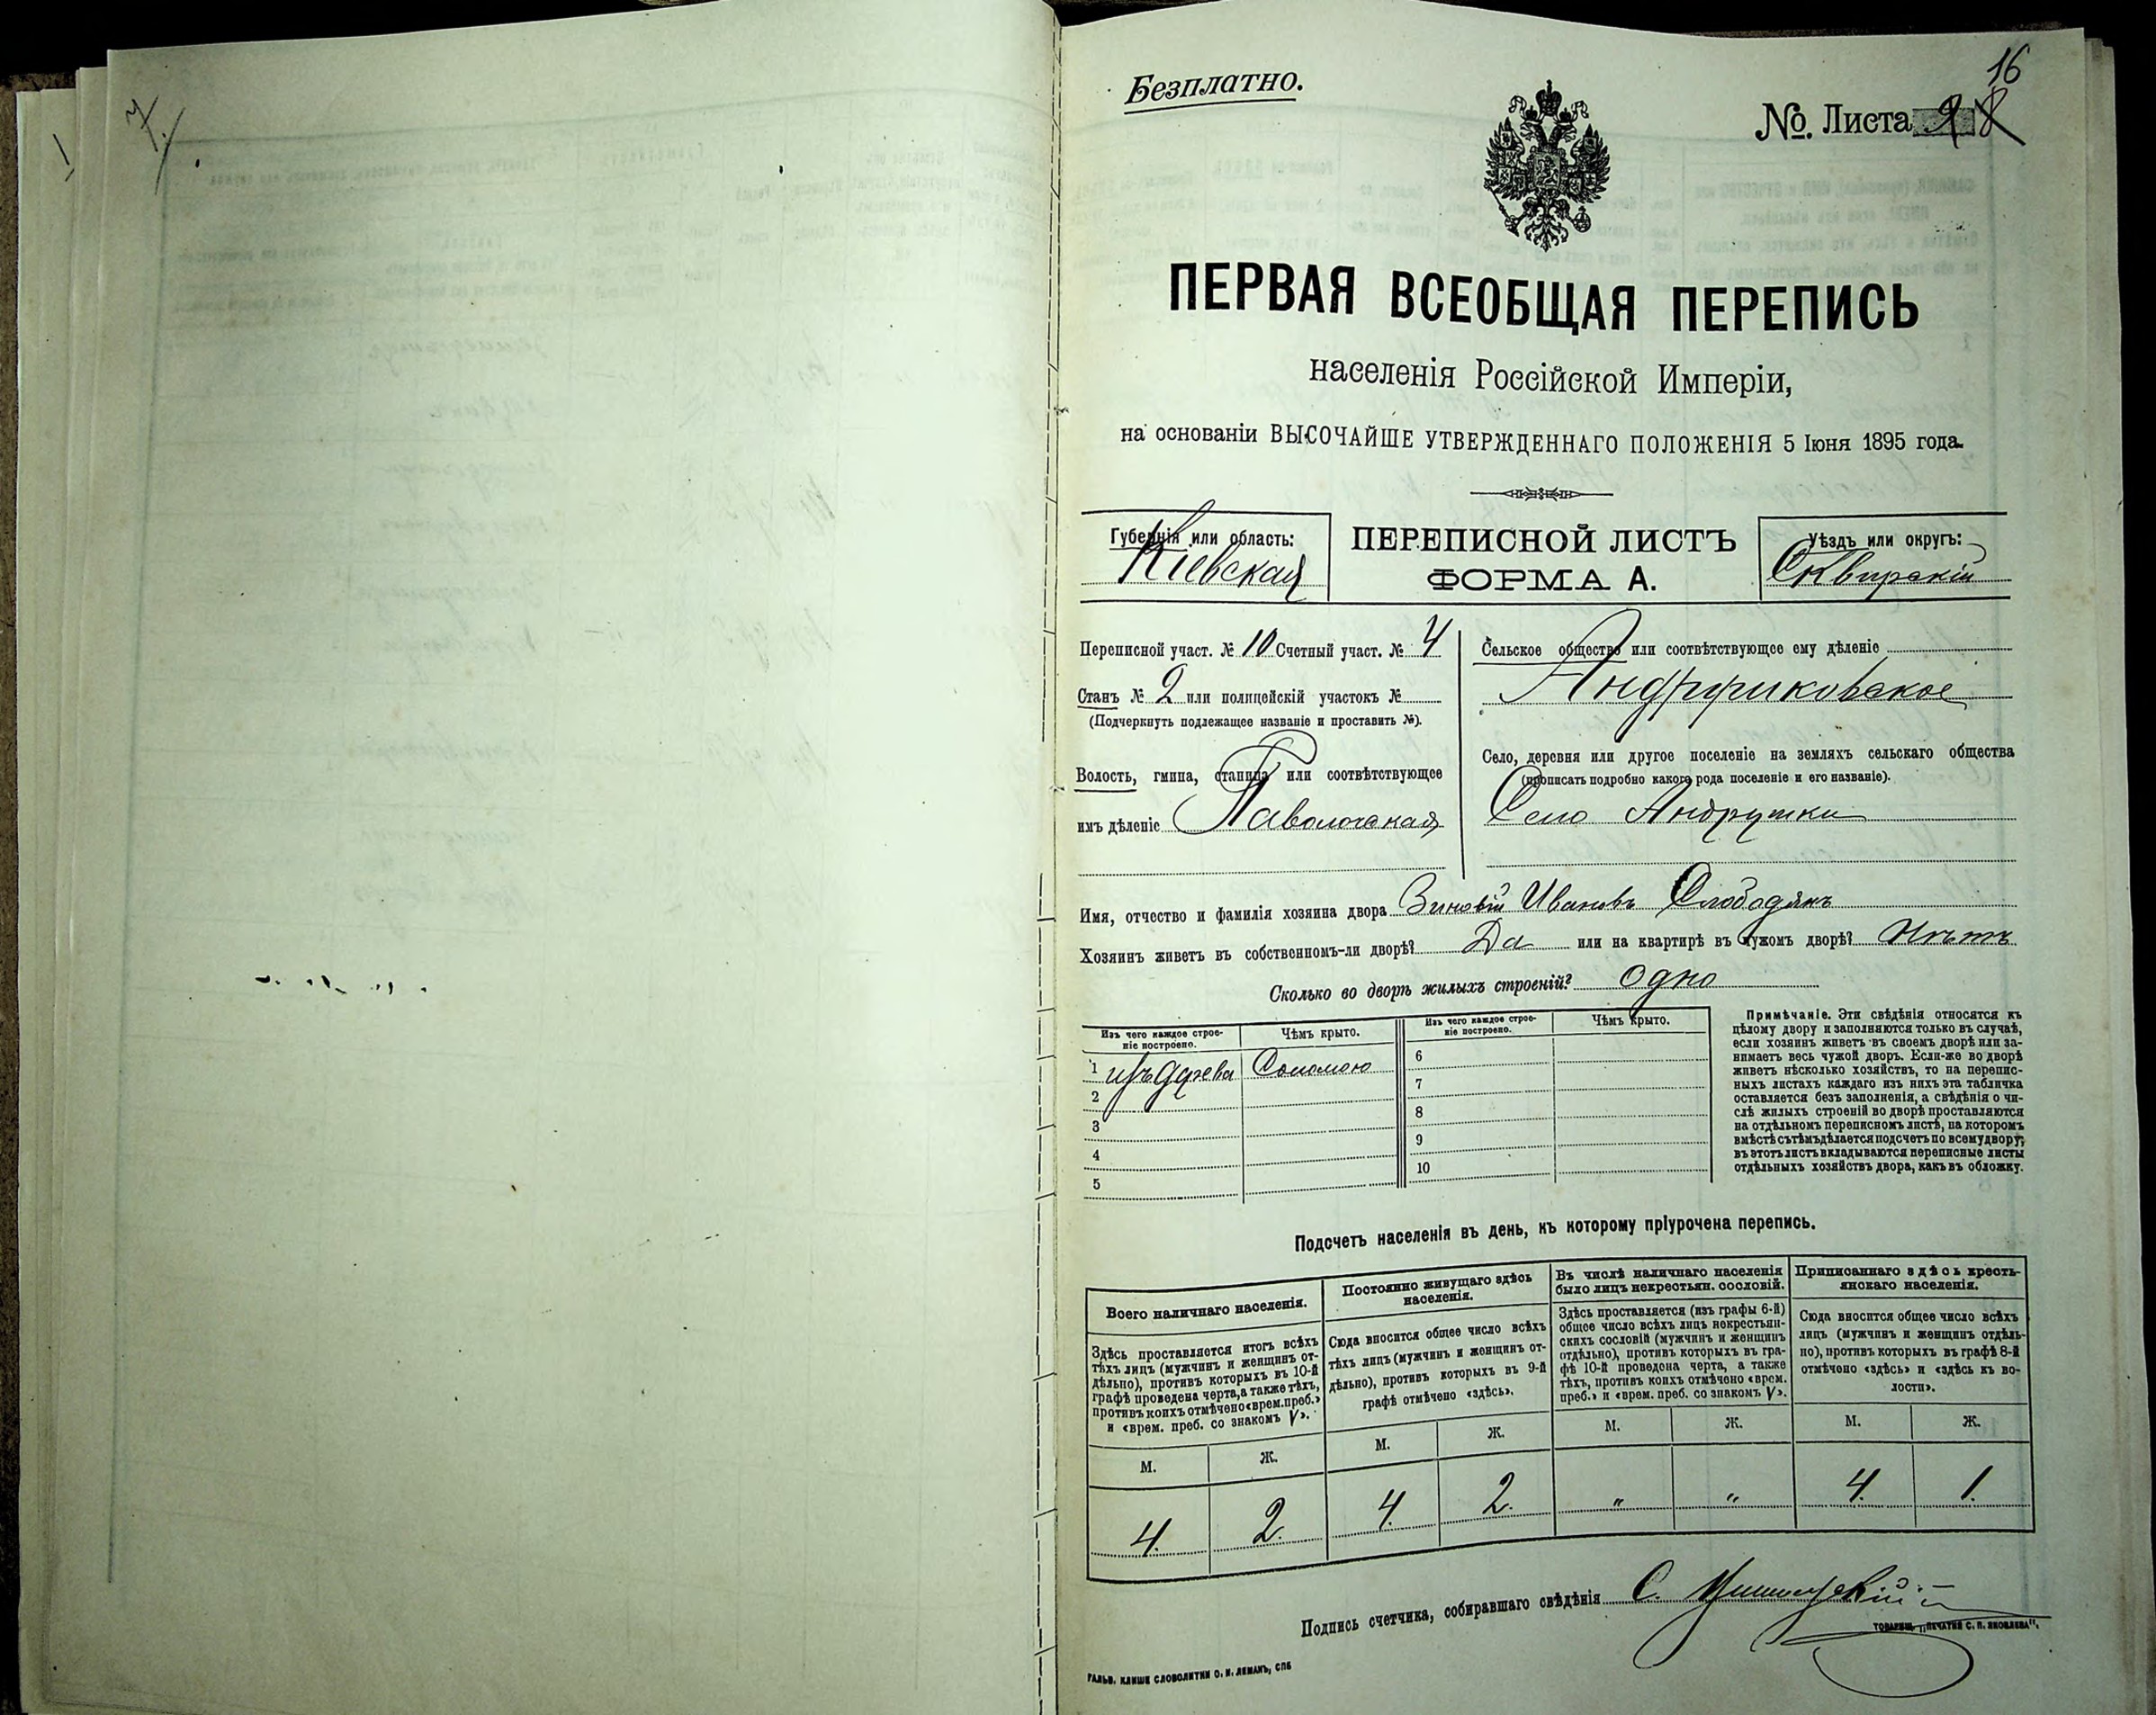 Безплатно.
16
№. Листа
ПЕРВАЯ ВСЕОБЩАЯ ПЕРЕПИСЬ
населенія Россійской Имперіи,
на основаніи ВЫСОЧАЙШЕ УТВЕРЖДЕННАГО ПОЛОЖЕНІЯ 5 Іюня 1895 года.
Губернія или область:
Кіевская
ПЕРЕПИСНОЙ ЛИСТЪ
ФОРМА А.
Уѣздъ или округъ:
Сквирскій
Переписной участ. № 10 Счетный участ. № 4
Станъ № 2 или полицейскій участокъ №
(Подчеркнуть подлежащее названіе и проставить №).
Волость, гмина, станица или соотвѣтствующее
имъ дѣленіе Паволочская
Сельское общество или соотвѣтствующее ему дѣленіе
Село, деревня или другое поселеніе на земляхъ сельскаго общества
(прописать подробно какого рода поселеніе и его названіе).
Село Андрушки
Имя, отчество и фамилія хозяина двора Зиновій Ивановъ Слободянъ
Хозяинъ живетъ въ собственномъ-ли дворѣ? Да или на квартирѣ въ чужомъ дворѣ? Нѣтъ
Сколько во дворѣ жилыхъ строеній? Одно
Изъ чего каждое строе-
ніе построено.
Чѣмъ крыто.
1 изъ дерева Соломою
2
3
4
5
Изъ чего каждое строе-
ніе построено.
Чѣмъ крыто.
6
7
8
9
10
Примѣчаніе. Эти свѣдѣнія относятся къ
цѣлому двору и заполняются только въ случаѣ,
если хозяинъ живетъ въ своемъ дворѣ или за-
нимаетъ весь чужой дворъ. Если-же во дворѣ
живетъ нѣсколько хозяйствъ, то на перепис-
ныхъ листахъ каждаго изъ нихъ эта табличка
оставляется безъ заполненія, а свѣдѣнія о чи-
слѣ жилыхъ строеній во дворѣ проставляются
на отдѣльномъ переписномъ листѣ, на которомъ
вмѣстѣ съ тѣмъ дѣлается подсчетъ по всему двору;
въ этотъ листъ вкладываются переписные листы
отдѣльныхъ хозяйствъ двора, какъ въ обложку.
Подсчетъ населенія въ день, къ которому пріурочена перепись.
Всего наличнаго населенія.
Здѣсь проставляется итогъ всѣхъ
тѣхъ лицъ (мужчинъ и женщинъ от-
дѣльно), противъ которыхъ въ 10-й
графѣ проведена черта, а также тѣхъ,
противъ коихъ отмѣчено «врем. преб.»
и «врем. преб. со знакомъ V».
М. Ж.
4. 2.
Постоянно живущаго здѣсь
населенія.
Сюда вносится общее число всѣхъ
тѣхъ лицъ (мужчинъ и женщинъ от-
дѣльно), противъ которыхъ въ 9-й
графѣ отмѣчено «здѣсь».
М. Ж.
4. 2.
Въ числѣ наличнаго населенія
было лицъ некрестьян. сословій.
Здѣсь проставляется (изъ графы 6-й)
общее число всѣхъ лицъ некрестьян-
скихъ сословій (мужчинъ и женщинъ
отдѣльно), противъ которыхъ въ гра-
фѣ 10-й проведена черта, а также
тѣхъ, противъ коихъ отмѣчено «врем.
преб.» и «врем. преб. со знакомъ V».
М. Ж.
" "
Приписаннаго здѣсь кресть-
янскаго населенія.
Сюда вносится общее число всѣхъ
лицъ (мужчинъ и женщинъ отдѣль-
но), противъ которыхъ въ графѣ 8-й
отмѣчено «здѣсь» и «здѣсь къ во-
лости».
М. Ж.
4. 1.
Подпись счетчика, собиравшаго свѣдѣнія С.
ТОВАРИЩ. „ПЕЧАТНЯ С. П. ЯКОВЛЕВА".
ГАЛЬВ. КЛИШЕ СЛОВОЛИТНИ О. И. ЛЕМАНЪ, СПБ